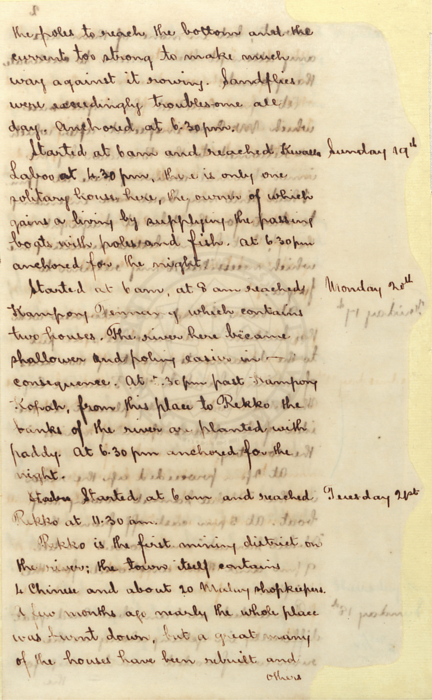 2
the poles to reach the bottom and the
current too strong to make much
way against it rowing. Sandflies
were exceedingly troublesome all
day. Anchored at 6.30 pm.
Started at 6 am and reached Kwala Sunday 19th
Laboo at 4.30 pm, there is only one
solitary house here, the owner of which
gains a living by supplying the passing
boats with poles and fish. At 6.30 pm
anchored for the night
Started at 6 am, at 8 am reached Monday 20th
Kampong which contains
two houses. The river here became
shallower and poling easier in
consequence. At .30 pm past Kampong
Kopah, from this place to Rekko the
banks of the river are planted with
paddy. At 6.30 pm anchored for the
night.
Started at 6 am and reached Tuesday 21st
Rekko at 11.30 am.
Rekko is the first mining district on
the river; the town itself contains
4 Chinese and about 20 Malay shopkeepers.
A few months ago nearly the whole place
was burnt down, but a great many
of the houses have been rebuilt and
others